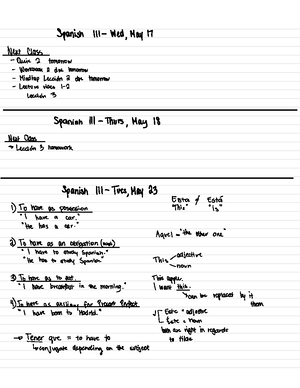 Spanish III - Wed, May 17
Next Class
- Quiz 2 tomorrow
- Workbook 2 due tomorrow
- Mindtap Lección 2 due tomorrow
- Lecture video 1-2
Lección 3
Spanish III - Thurs, May 18
Next Class
→ Lección 3 homework
Spanish III - Tues, May 23
1) To have as possession
"I have a car."
"He has a car."
Esta ≠ Está
"This" "Is"
Aquel = "the other one"
2) To have as an obligation (must)
"I have to study Spanish."
"He has to study Spanish"
This adjective
noun
3) To have as to eat
"I have breakfast in the morning."
This apple.
I want this.
can be replaced by it
them
4) To have as auxiliary for Present Perfect
"I have been to Madrid."
Este = adjective
Éste = noun
both are right in regards
to tilde
→ Tener que = to have to
conjugate depending on the subject